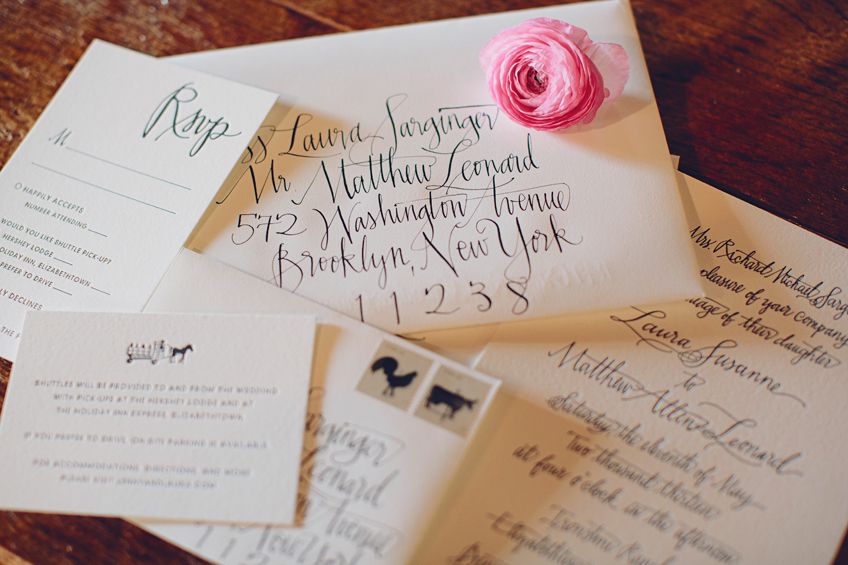 Rsvp
M
HAPPILY ACCEPTS
NUMBER ATTENDING
WOULD YOU LIKE SHUTTLE PICK-UP?
HERSHEY LODGE
HOLIDAY INN, ELIZABETHTOWN
PREFER TO DRIVE
DECLINES
Laura Sarginger
Mr. Matthew Leonard
572 Washington Avenue
Brooklyn, New York
11238
SHUTTLES WILL BE PROVIDED TO AND FROM THE WEDDING
WITH PICK-UPS AT THE HERSHEY LODGE AND AT
THE HOLIDAY INN EXPRESS, ELIZABETHTOWN
IF YOU PREFER TO DRIVE, ON SITE PARKING IS AVAILABLE
FOR ACCOMMODATIONS, DIRECTIONS, AND MORE
PLEASE VISIT
Sarginger
Leonard
Avenue
New York
112
Mrs. Richard Michael
pleasure of your company
of their daughter
Laura Susanne
to
Matthew Leonard
Saturday, the eleventh of May
Two thousand thirteen
at four o'clock in the afternoon